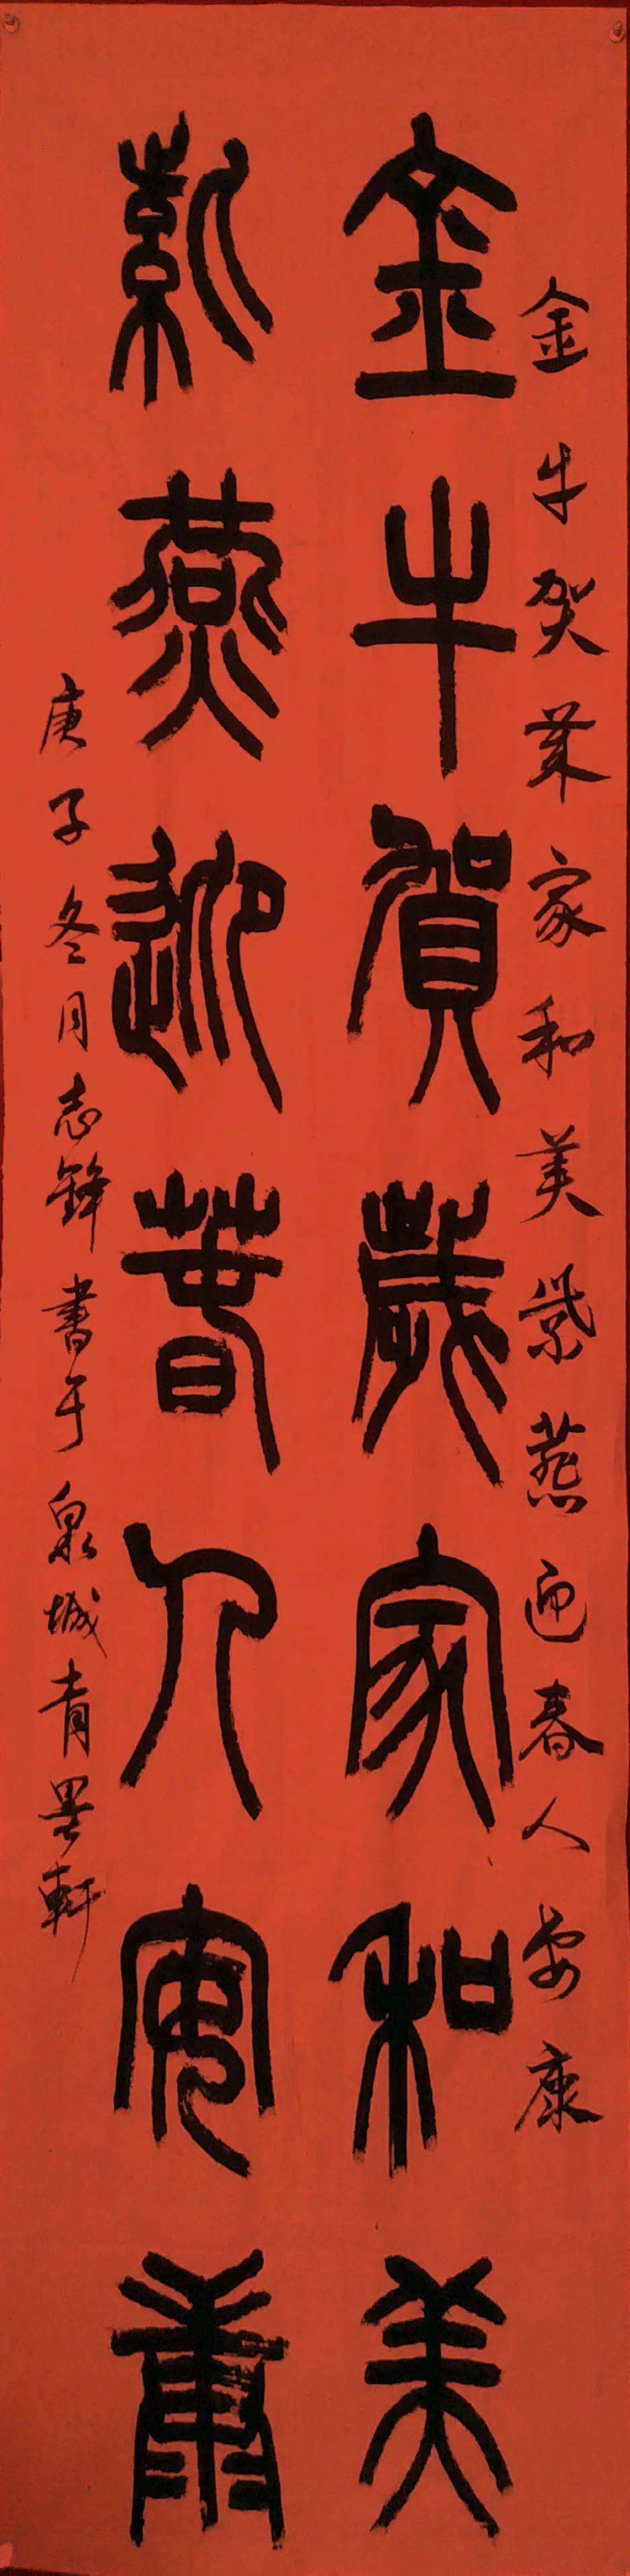 金牛贺业家和美紫燕迎春人安康
金牛賀歲家和美
紫燕迎春人安康
庚子冬月志鋒書于泉城青墨軒